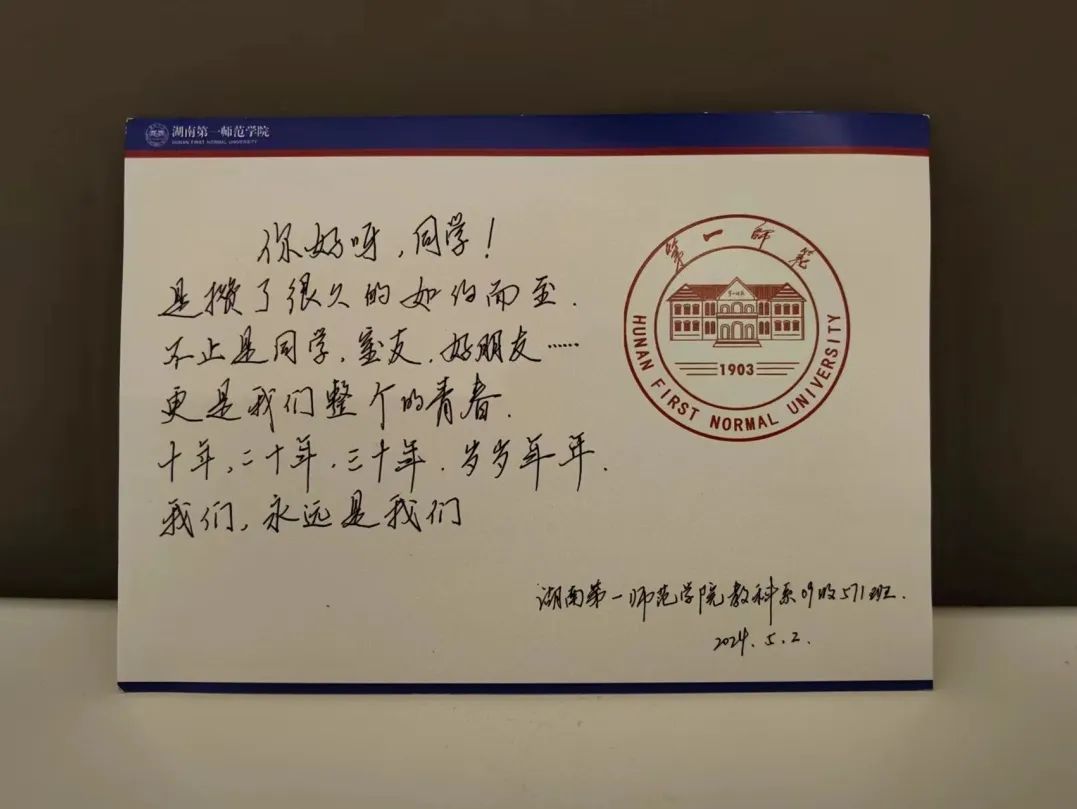 湖南第一师范学院
HUNAN FIRST NORMAL UNIVERSITY
你好呀，同学！
是攒了很久的如约而至．
不止是同学、室友、好朋友……
更是我们整个的青春．
十年，二十年，三十年．岁岁年年．
我们，永远是我们
第一师范
第一师范
1903
HUNAN FIRST NORMAL UNIVERSITY
湖南第一师范学院教科系09级571班．
2024.5.2.